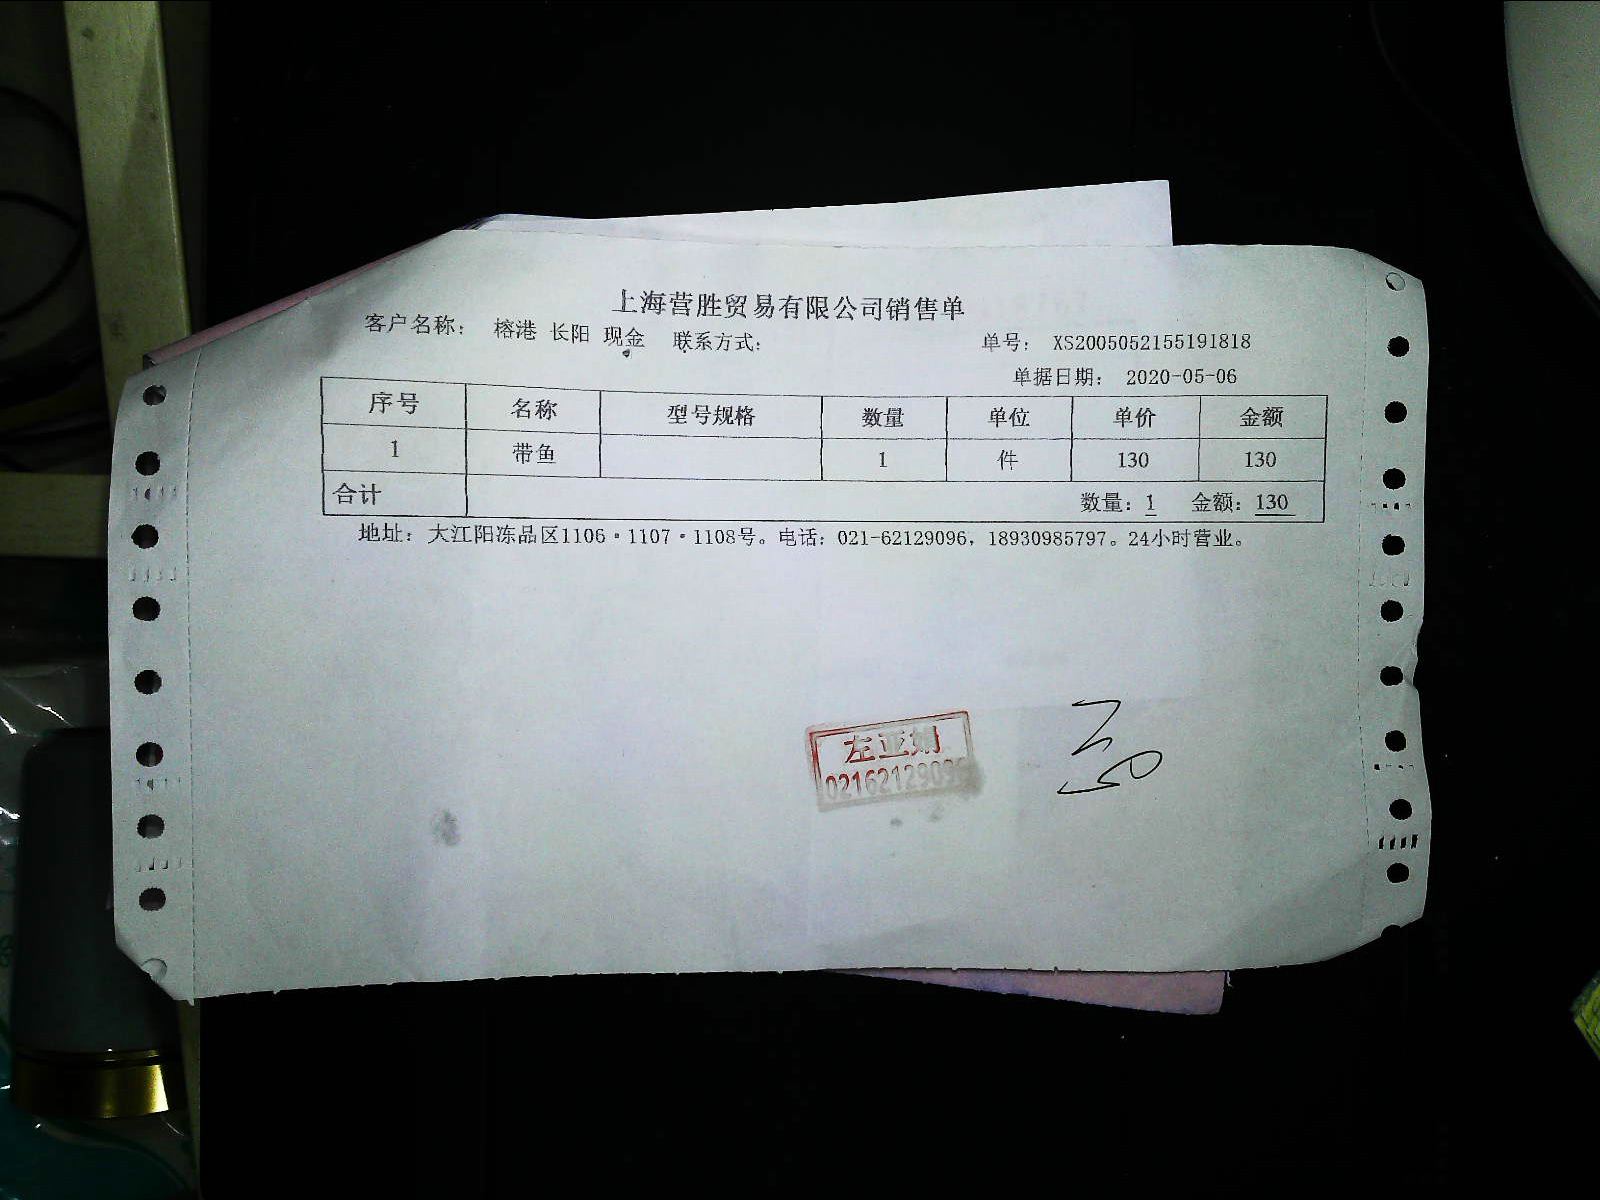 上海营胜贸易有限公司销售单
客户名称： 榕港 长阳 现金 联系方式： 单号： XS2005052155191818
单据日期： 2020-05-06
序号 名称 型号规格 数量 单位 单价 金额
1 带鱼 1 件 130 130
合计 数量：1 金额：130
地址：大江阳冻品区1106·1107·1108号。电话：021-62129096，18930985797。24小时营业。
左亚娟
02162129096